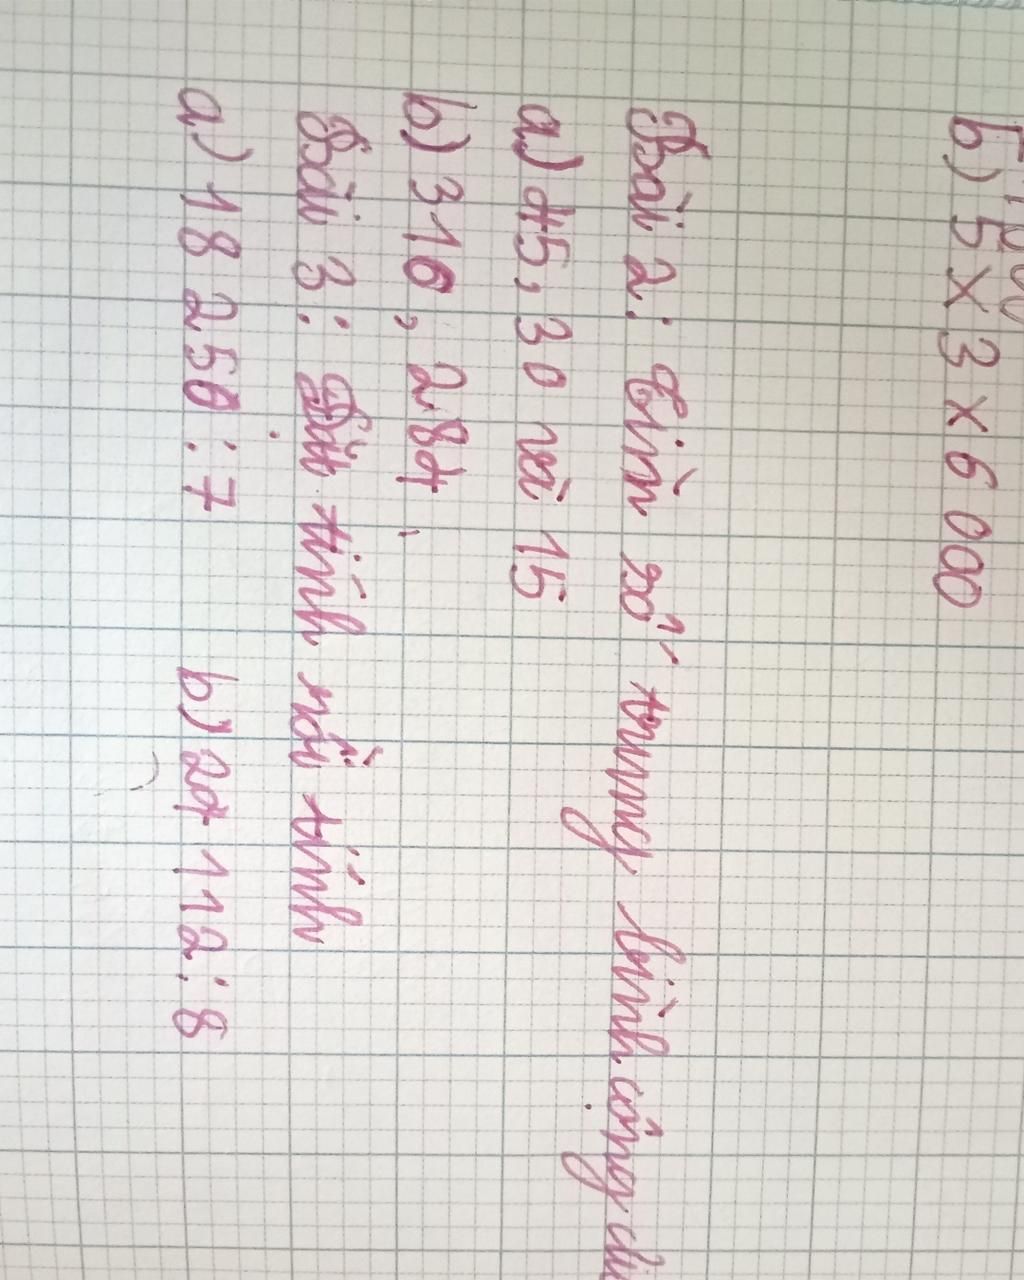 b) 5 x 3 x 6 000
Bài 2: Tìm số trung bình cộng
a) 45, 30 và 15
b) 316, 284
Bài 3: Đặt tính rồi tính
a) 18 250 : 7 b) 24 112 : 8